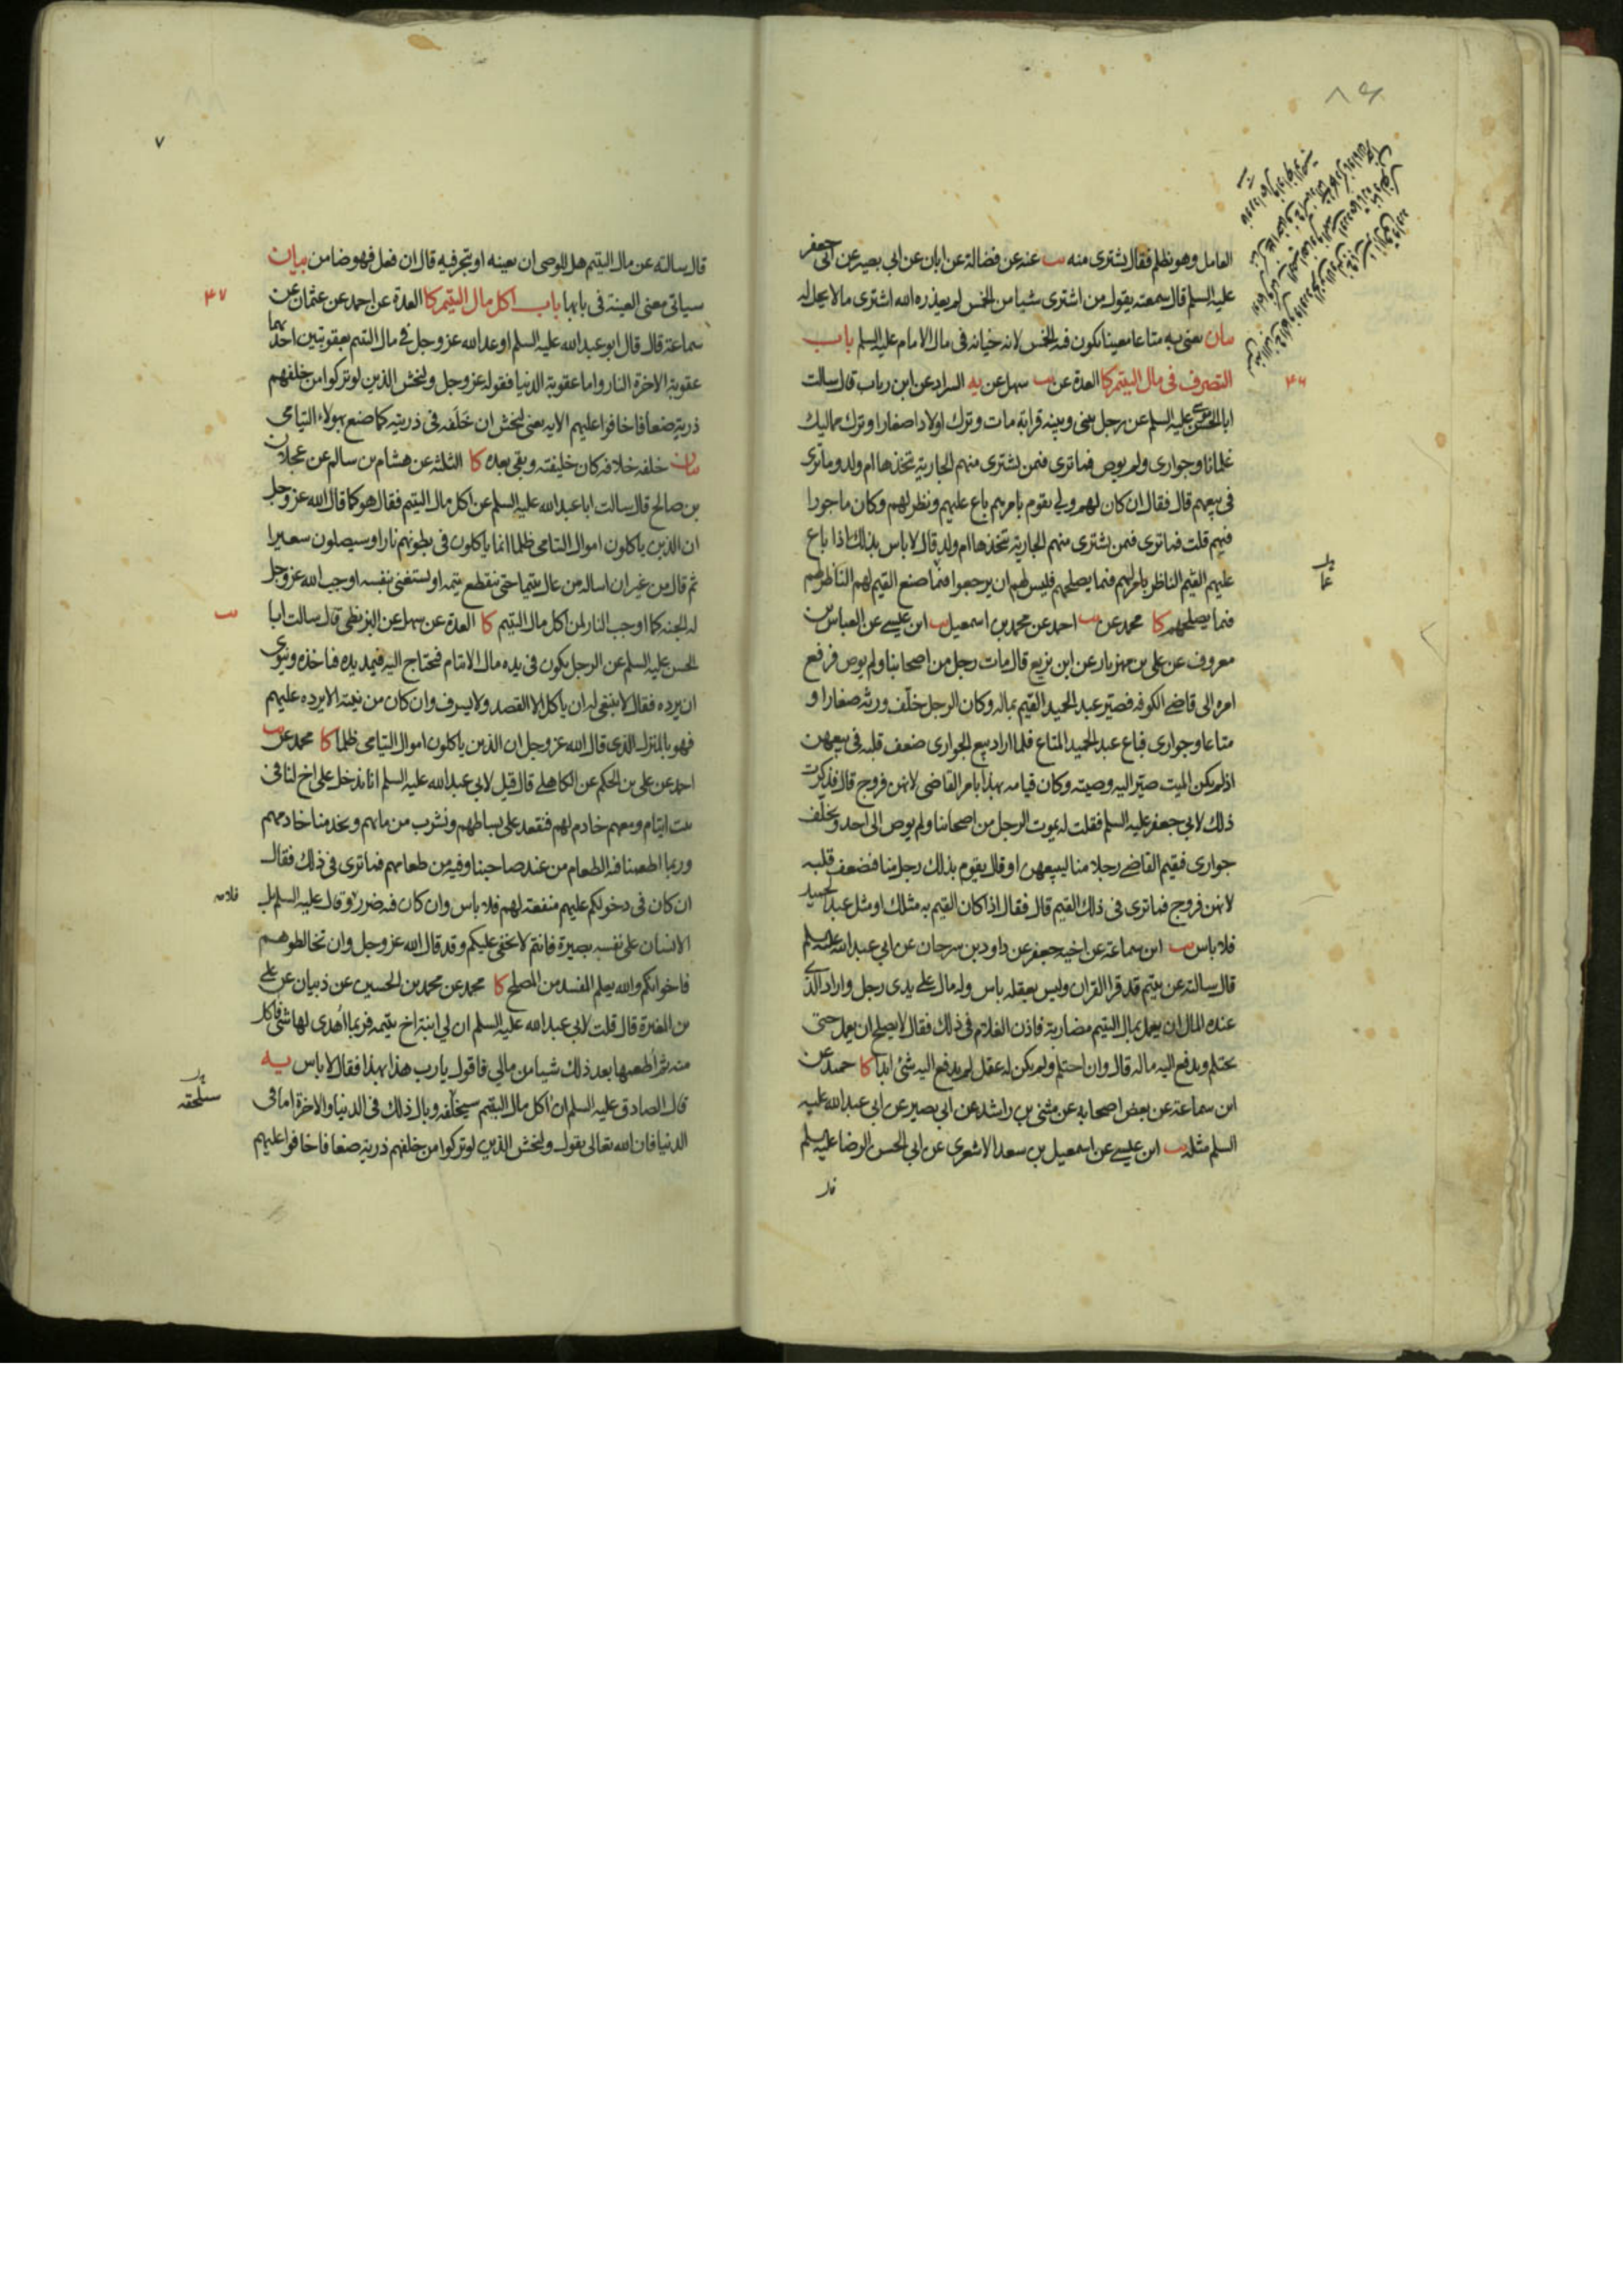 العامل وهو يظلم فقال يشترى منه يب عنه عن فضالة عن ابان عن ابي بصير عن ابى جعفر
عليه السلم قال سمعته يقول من اشترى شيئا من الخمس لم يعذره الله اشترى ما لا يحل له
بيان يعنى به متاعا معينا يكون فيه الخمس لانه خيانه فى مال الامام عليه السلم باب
التصرف فى مال اليتيم كا العدة عن سهل عن يه السراد عن ابن رياب قال سالت
ابا الحسن موسى عليه السلم عن رجل بينى وبينه قرابة مات وترك اولادا صغارا وترك مماليك
غلمانا وجوارى ولم يوص فما ترى فيمن يشترى منهم الجارية يتخذها ام ولد وما ترى
فى بيعهم قال فقال ان كان لهم ولي يقوم بامرهم باع عليهم ونظر لهم وكان ماجورا
فيهم قلت فما ترى فيمن يشترى منهم الجارية يتخذها ام ولد قال لا باس بذلك اذا باع
عليهم القيم الناظر بامرهم فيما يصلحهم فليس لهم ان يرجعوا فيما صنع القيم لهم الناظر لهم
فيما يصلحهم كا محمد عن يب احمد عن محمد بن اسمعيل يب ابن عيسى عن العباس بن
معروف عن على بن مهزيار عن ابن بزيع قال مات رجل من اصحابنا ولم يوص فرفع
امره الى قاضى الكوفه فصير عبد الحميد القيم بماله وكان الرجل خلف ورثه صغارا و
متاعا وجوارى فباع عبد الحميد المتاع فلما اراد بيع الجوارى ضعف قلبه فى بيعهن
اذ لم يكن الميت صير اليه وصيته وكان قيامه بهذا بامر القاضى لانهن فروج قال فذكرت
ذلك لابي جعفر عليه السلم فقلت له يموت الرجل من اصحابنا ولم يوص الى احد ويخلف
جوارى فيقيم القاضى رجلا منا ليبيعهن او قال يقوم بذلك رجل منا فيضعف قلبه
لانهن فروج فما ترى فى ذلك القيم قال فقال اذا كان القيم به مثلك او مثل عبد الحميد
فلا باس يب ابن سماعة عن اخيه جعفر عن داود بن سرحان عن ابى عبد الله عليه السلم
قال سالته عن يتيم قد قرا القران وليس بعقله باس وله مال على يدى رجل واراد الذى
عنده المال ان يعمل بمال اليتيم مضاربة فاذن الغلام فى ذلك فقال لا يصلح ان يعمل حتى
يحتلم ويدفع اليه ماله قال وان احتلم ولم يكن له عقل لم يدفع اليه شئ ابدا كا حميد عن
ابن سماعة عن بعض اصحابه عن مثنى بن راشد عن ابى بصير عن ابى عبد الله عليه
السلم مثله يب ابن عيسى عن اسمعيل بن سعد الاشعرى عن ابي الحسن الرضا عليه السلم
قال
۴۶
قال سالته عن مال اليتيم هل للوصى ان يعينه او يتجر فيه قال ان فعل فهو ضامن بيان
سياتى معنى العينة فى بابها باب اكل مال اليتيم كا العدة عن احمد عن عثمان عن
سماعة قال قال ابو عبد الله عليه السلم اوعد الله عز وجل فى مال اليتيم بعقوبتين احديهما
عقوبة الاخرة النار واما عقوبة الدنيا فقوله عز وجل وليخش الذين لو تركوا من خلفهم
ذرية ضعافا خافوا عليهم الايه يعنى ليخش ان خلفه فى ذريته كما صنع بهولاء اليتامى
بيان خلفه خلافه كان خليفته وبقى بعده كا الثلثة عن هشام بن سالم عن عجلان
بن صالح قال سالت ابا عبد الله عليه السلم عن اكل مال اليتيم فقال هو كما قال الله عز وجل
ان الذين ياكلون اموال اليتامى ظلما انما ياكلون فى بطونهم نارا وسيصلون سعيرا
ثم قال من غير ان اساله من عال يتيما حتى ينقطع يتمه او يستغنى بنفسه اوجب الله عز وجل
له الجنه كما اوجب النار لمن اكل مال اليتيم كا العدة عن سهل عن البزنطى قال سالت ابا
الحسن عليه السلم عن الرجل يكون فى يده مال الايتام فيحتاج اليه فيمد يده فياخذه وينوى
ان يرده فقال لا ينبغى له ان ياكل الا القصد ولا يسرف وان كان من نيته الا يرده عليهم
فهو بالمنزل الذى قال الله عز وجل ان الذين ياكلون اموال اليتامى ظلما كا محمد عن يب
احمد عن على بن الحكم عن الكاهلى قال قيل لابي عبد الله عليه السلم انا ندخل على اخ لنا فى
بيت ايتام ومعهم خادم لهم فنقعد على بساطهم ونشرب من مائهم ويخدمنا خادمهم
وربما اطعمنا فيه الطعام من عند صاحبنا وفيه من طعامهم فما ترى فى ذلك فقال
ان كان فى دخولكم عليهم منفعة لهم فلا باس وان كان فيه ضرر فلا وقال عليه السلم بل
الانسان على نفسه بصيرة فانتم لا يخفى عليكم وقد قال الله عز وجل وان تخالطوهم
فاخوانكم والله يعلم المفسد من المصلح كا محمد عن محمد بن الحسين عن ذبيان عن على
بن المغيرة قال قلت لابي عبد الله عليه السلم ان لي ابنة اخ يتيمه فربما اهدى لها شئ فاكل
منه ثم اطعمها بعد ذلك شيئا من مالي فاقول يا رب هذا بهذا فقال لا باس يه
قال الصادق عليه السلم ان اكل مال اليتيم سيخلفه وبال ذلك فى الدنيا والاخرة اما فى
الدنيا فان الله تعالى يقول وليخش الذين لو تركوا من خلفهم ذرية ضعافا خافوا عليهم
۴۷
يب
سيلحقه
۷